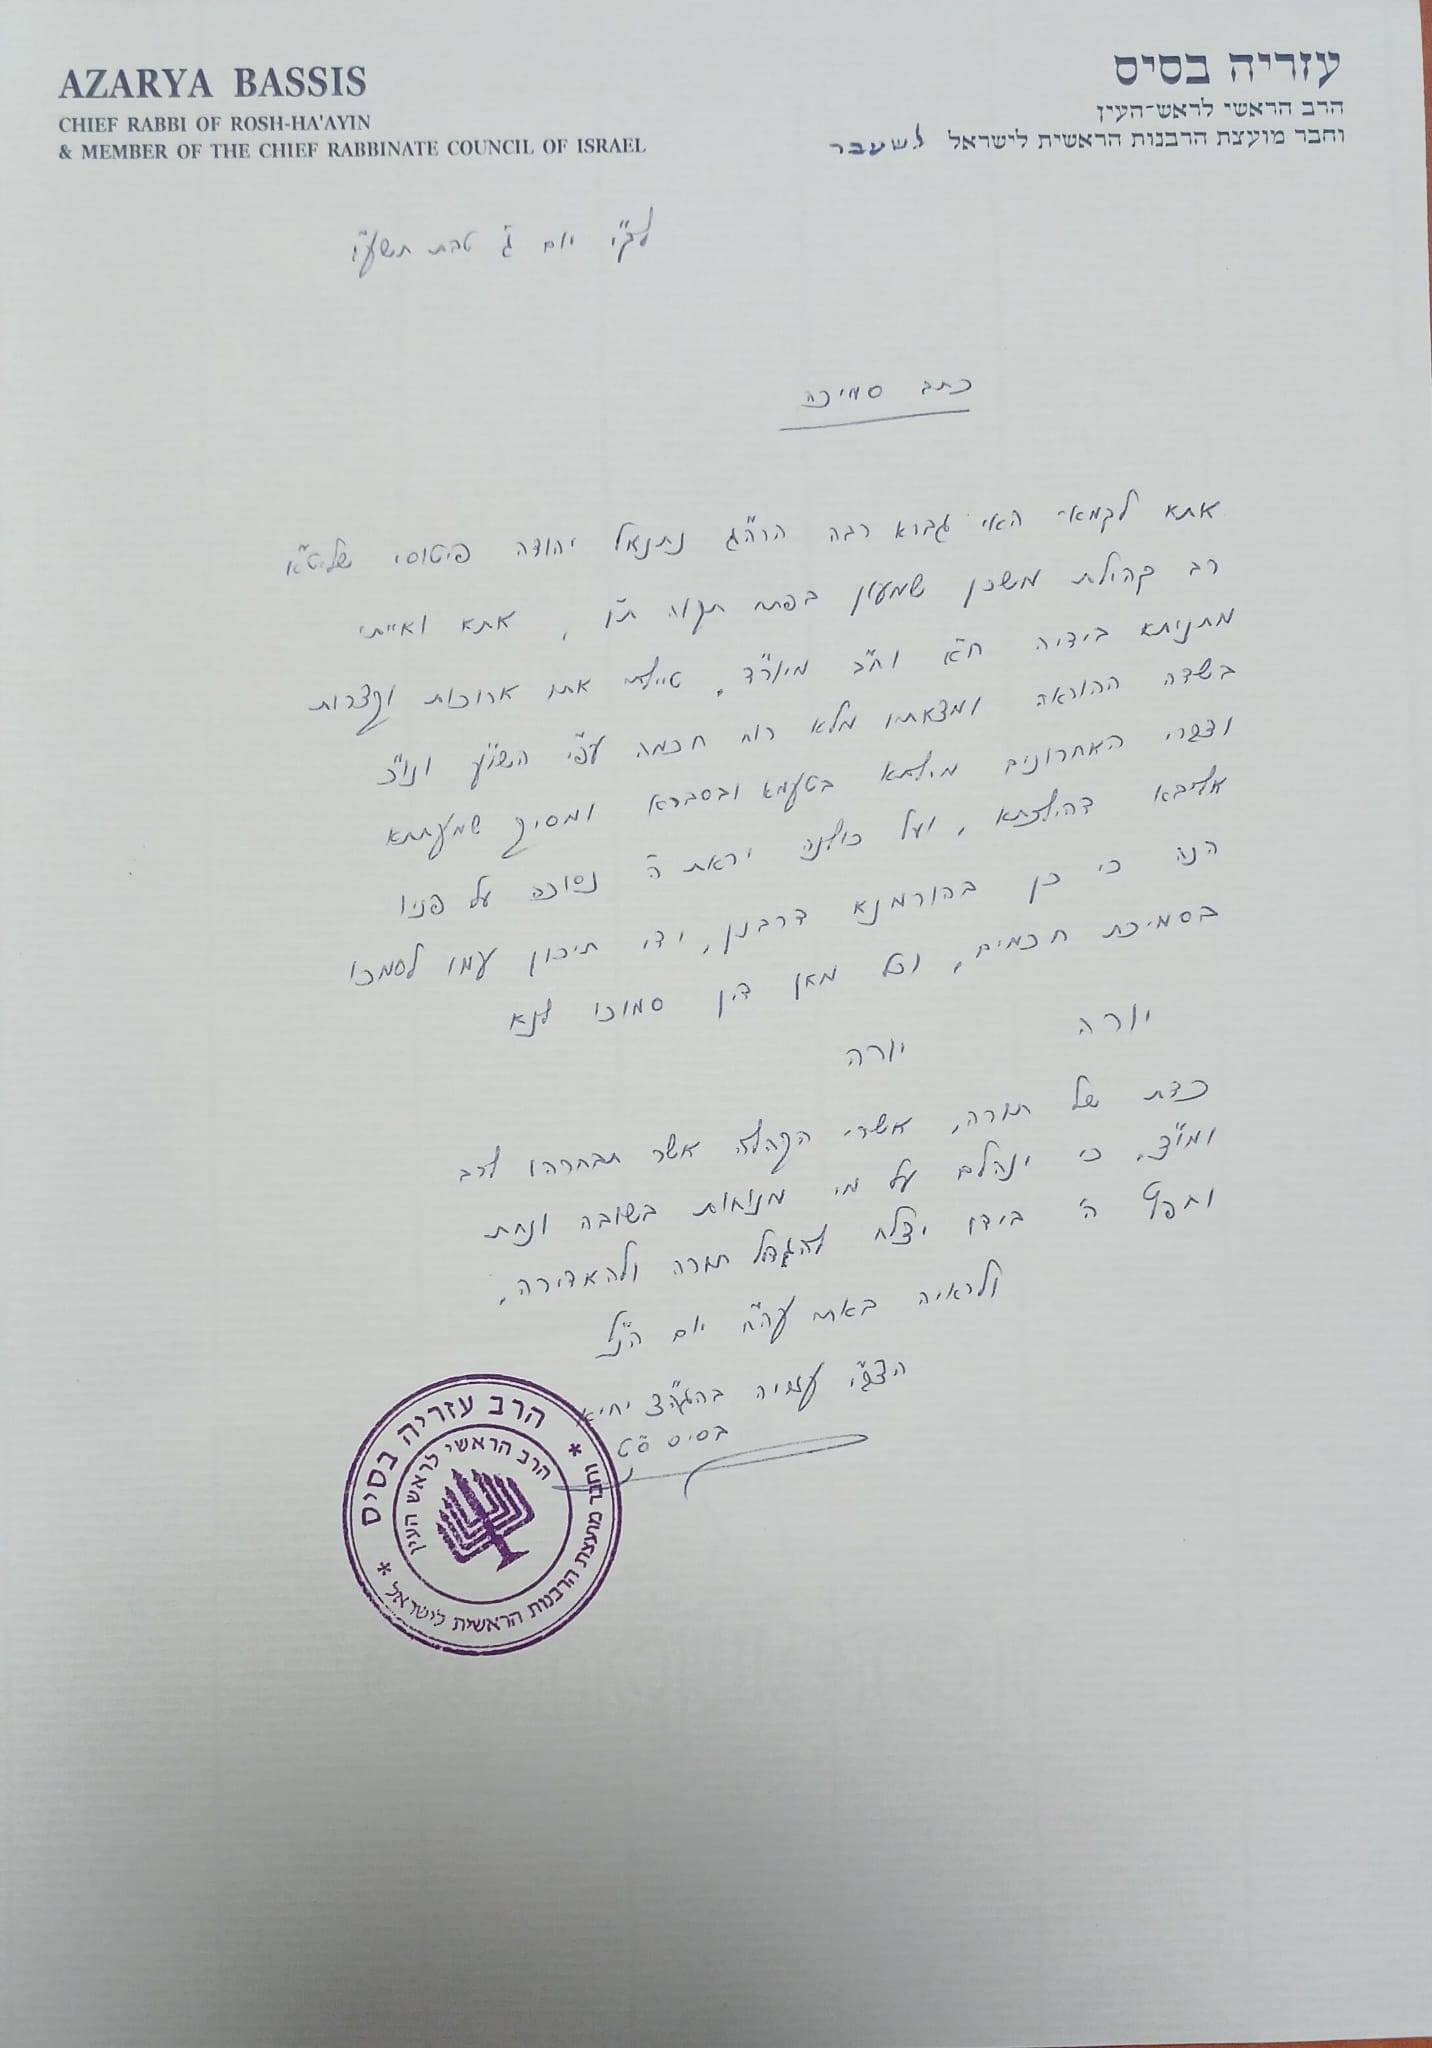 AZARYA BASSIS
CHIEF RABBI OF ROSH-HA'AYIN
& MEMBER OF THE CHIEF RABBINATE COUNCIL OF ISRAEL
עזריה בסיס
הרב הראשי לראש-העין
וחבר מועצת הרבנות הראשית לישראל לשעבר
יום ג' טבת תשע"ו
כתב סמיכה
אתא לקמאי האי גברא רבה הרה"ג נתנאל יהודה פיטוסי שליט"א
רב קהילת משכן שמעון בפתח תקוה ת"ו, אתא ואייתי
מתניתא בידיה ח"א וח"ב מיור"ד. טיילתי אתו ארוכות וקצרות
בשדה ההוראה ומצאתיו מלא רוח חכמה עפ"י השו"ע ונו"כ
ודברי האחרונים מילתא בטעמא ובסברא ומסיק שמעתתא
אליבא דהילכתא, ועל כולנה יראת ה' נסוכה על פניו
הנה כי כן בהורמנא דרבנן, ידי תיכון עמו לסמכו
בסמיכת חכמים, וכל מאן דין סמוכו לנא
יורה יורה
כדת של תורה, אשרי הקהלה אשר תבחרהו לרב
ומו"צ, כי ינהלם על מי מנוחות בשובה ונחת
וחפץ ה' בידו יצלח להגדיל תורה ולהאדירה.
ולראיה באתי עה"ח יום הנ"ל
הצב"י עזריה בהגה"צ יחיא
בסיס ס"ט
* הרב עזריה בסיס *
וחבר מועצת הרבנות הראשית לישראל
הרב הראשי לראש העין